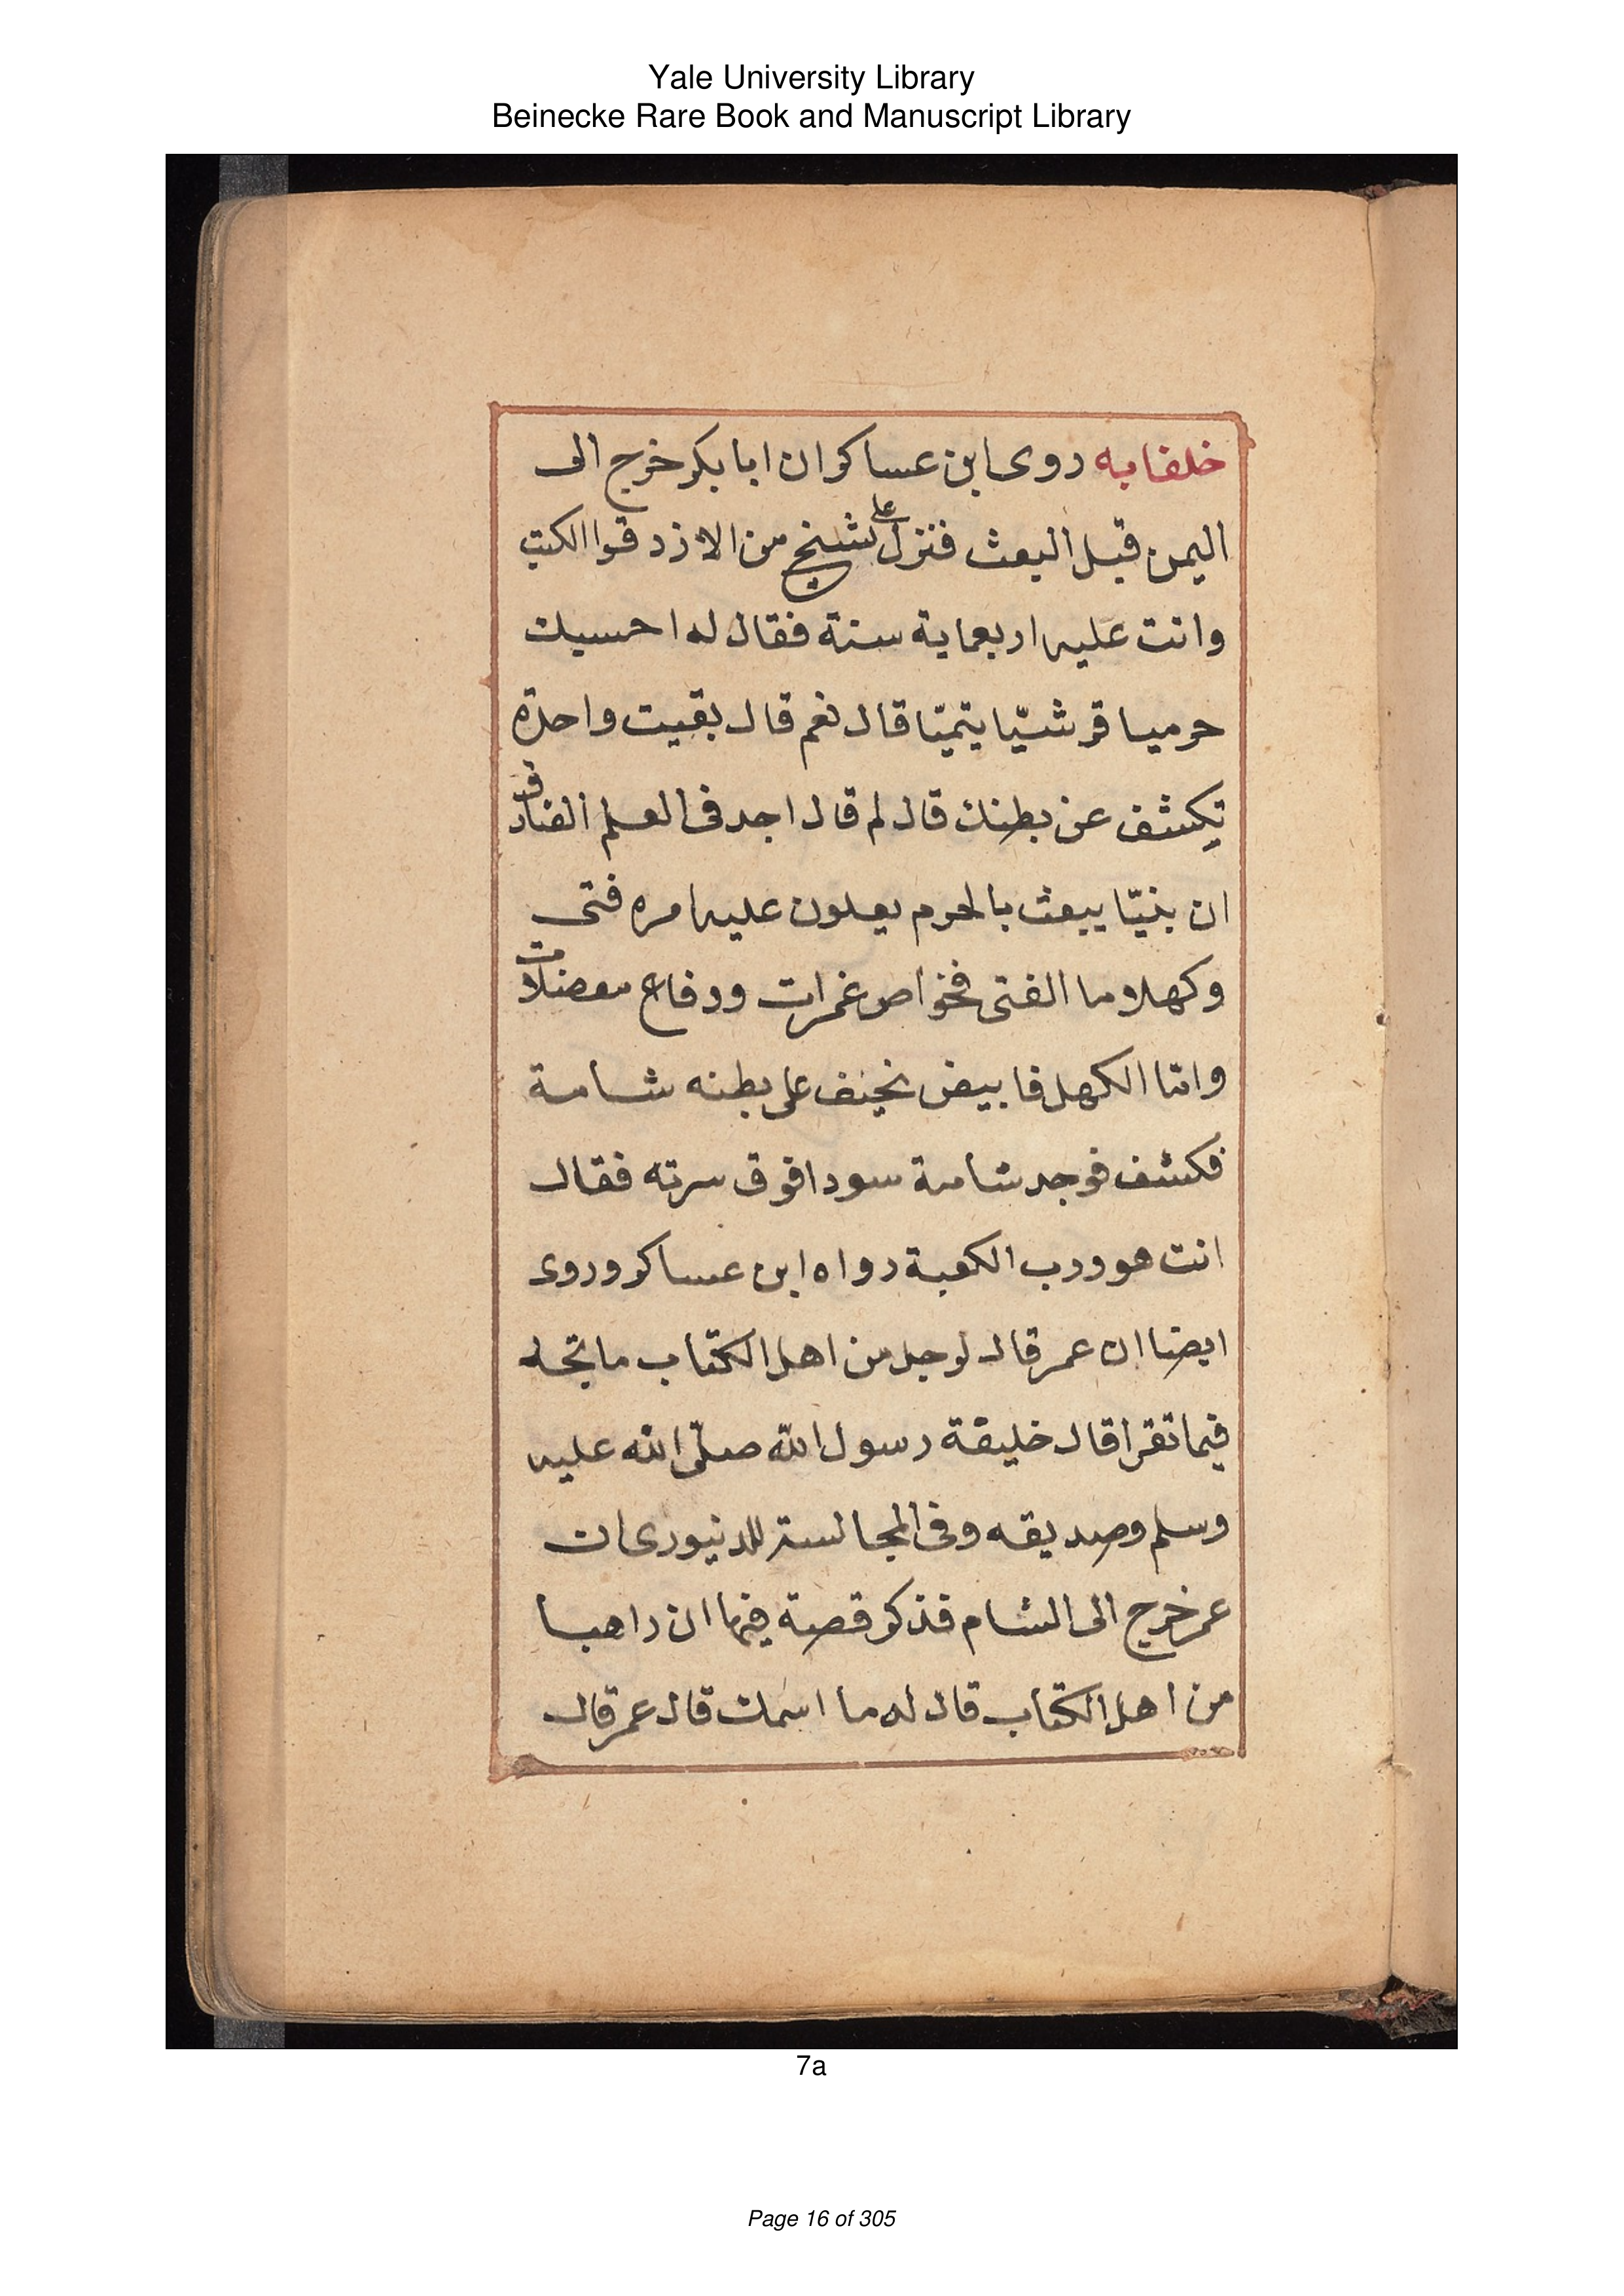 Yale University Library
Beinecke Rare Book and Manuscript Library
خلفايه روى ابن عساكر ان ابا بكر خرج الى
اليمن قبل البعث فنزل على شيخ من الازد قرا الكتب
وانت عليه اربعماية سنة فقال له احسبك
حرميا قرشيّا يتميّا قال نعم قال بقيت واحدة
تكشف عن بطنك قال لم قال اجد فى العلم الصادق
ان بنيّا يبعث بالحرم يعلون عليه امره فتى
وكهلا وما الفتى فخواص غمرات ودفاع معضلات
وامّا الكهل فابيض نحيف على بطنه شامة
فكشف فوجد شامة سودا فوق سرته فقال
انت هو ورب الكعبة رواه ابن عساكر وروى
ايضا ان عمر قال لرجل من اهل الكتاب ما تجد
فيما تقرا قال خليفة رسول الله صلّى الله عليه
وسلم وصديقه وفى المجالسة للدنيورى ان
عمر خرج الى الشام فذكر قصة فيها ان راهبا
من اهل الكتاب قال له ما اسمك قال عمر قال
7a
Page 16 of 305